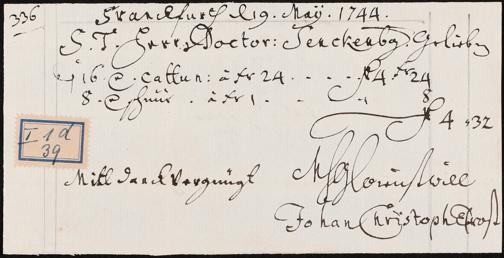 336
Franckfurth d 19. Maÿ. 1744.
S. T. Herr Doctor: Senckenbg: Gelieben
16 e. Cattun: à xr 24 - - - f 4 xr 24
8. e. schnür . à xr 1 - - - 8
f 4 : 32
I 1 d
39
Mitt danck Vergnügt
Johan Christoph